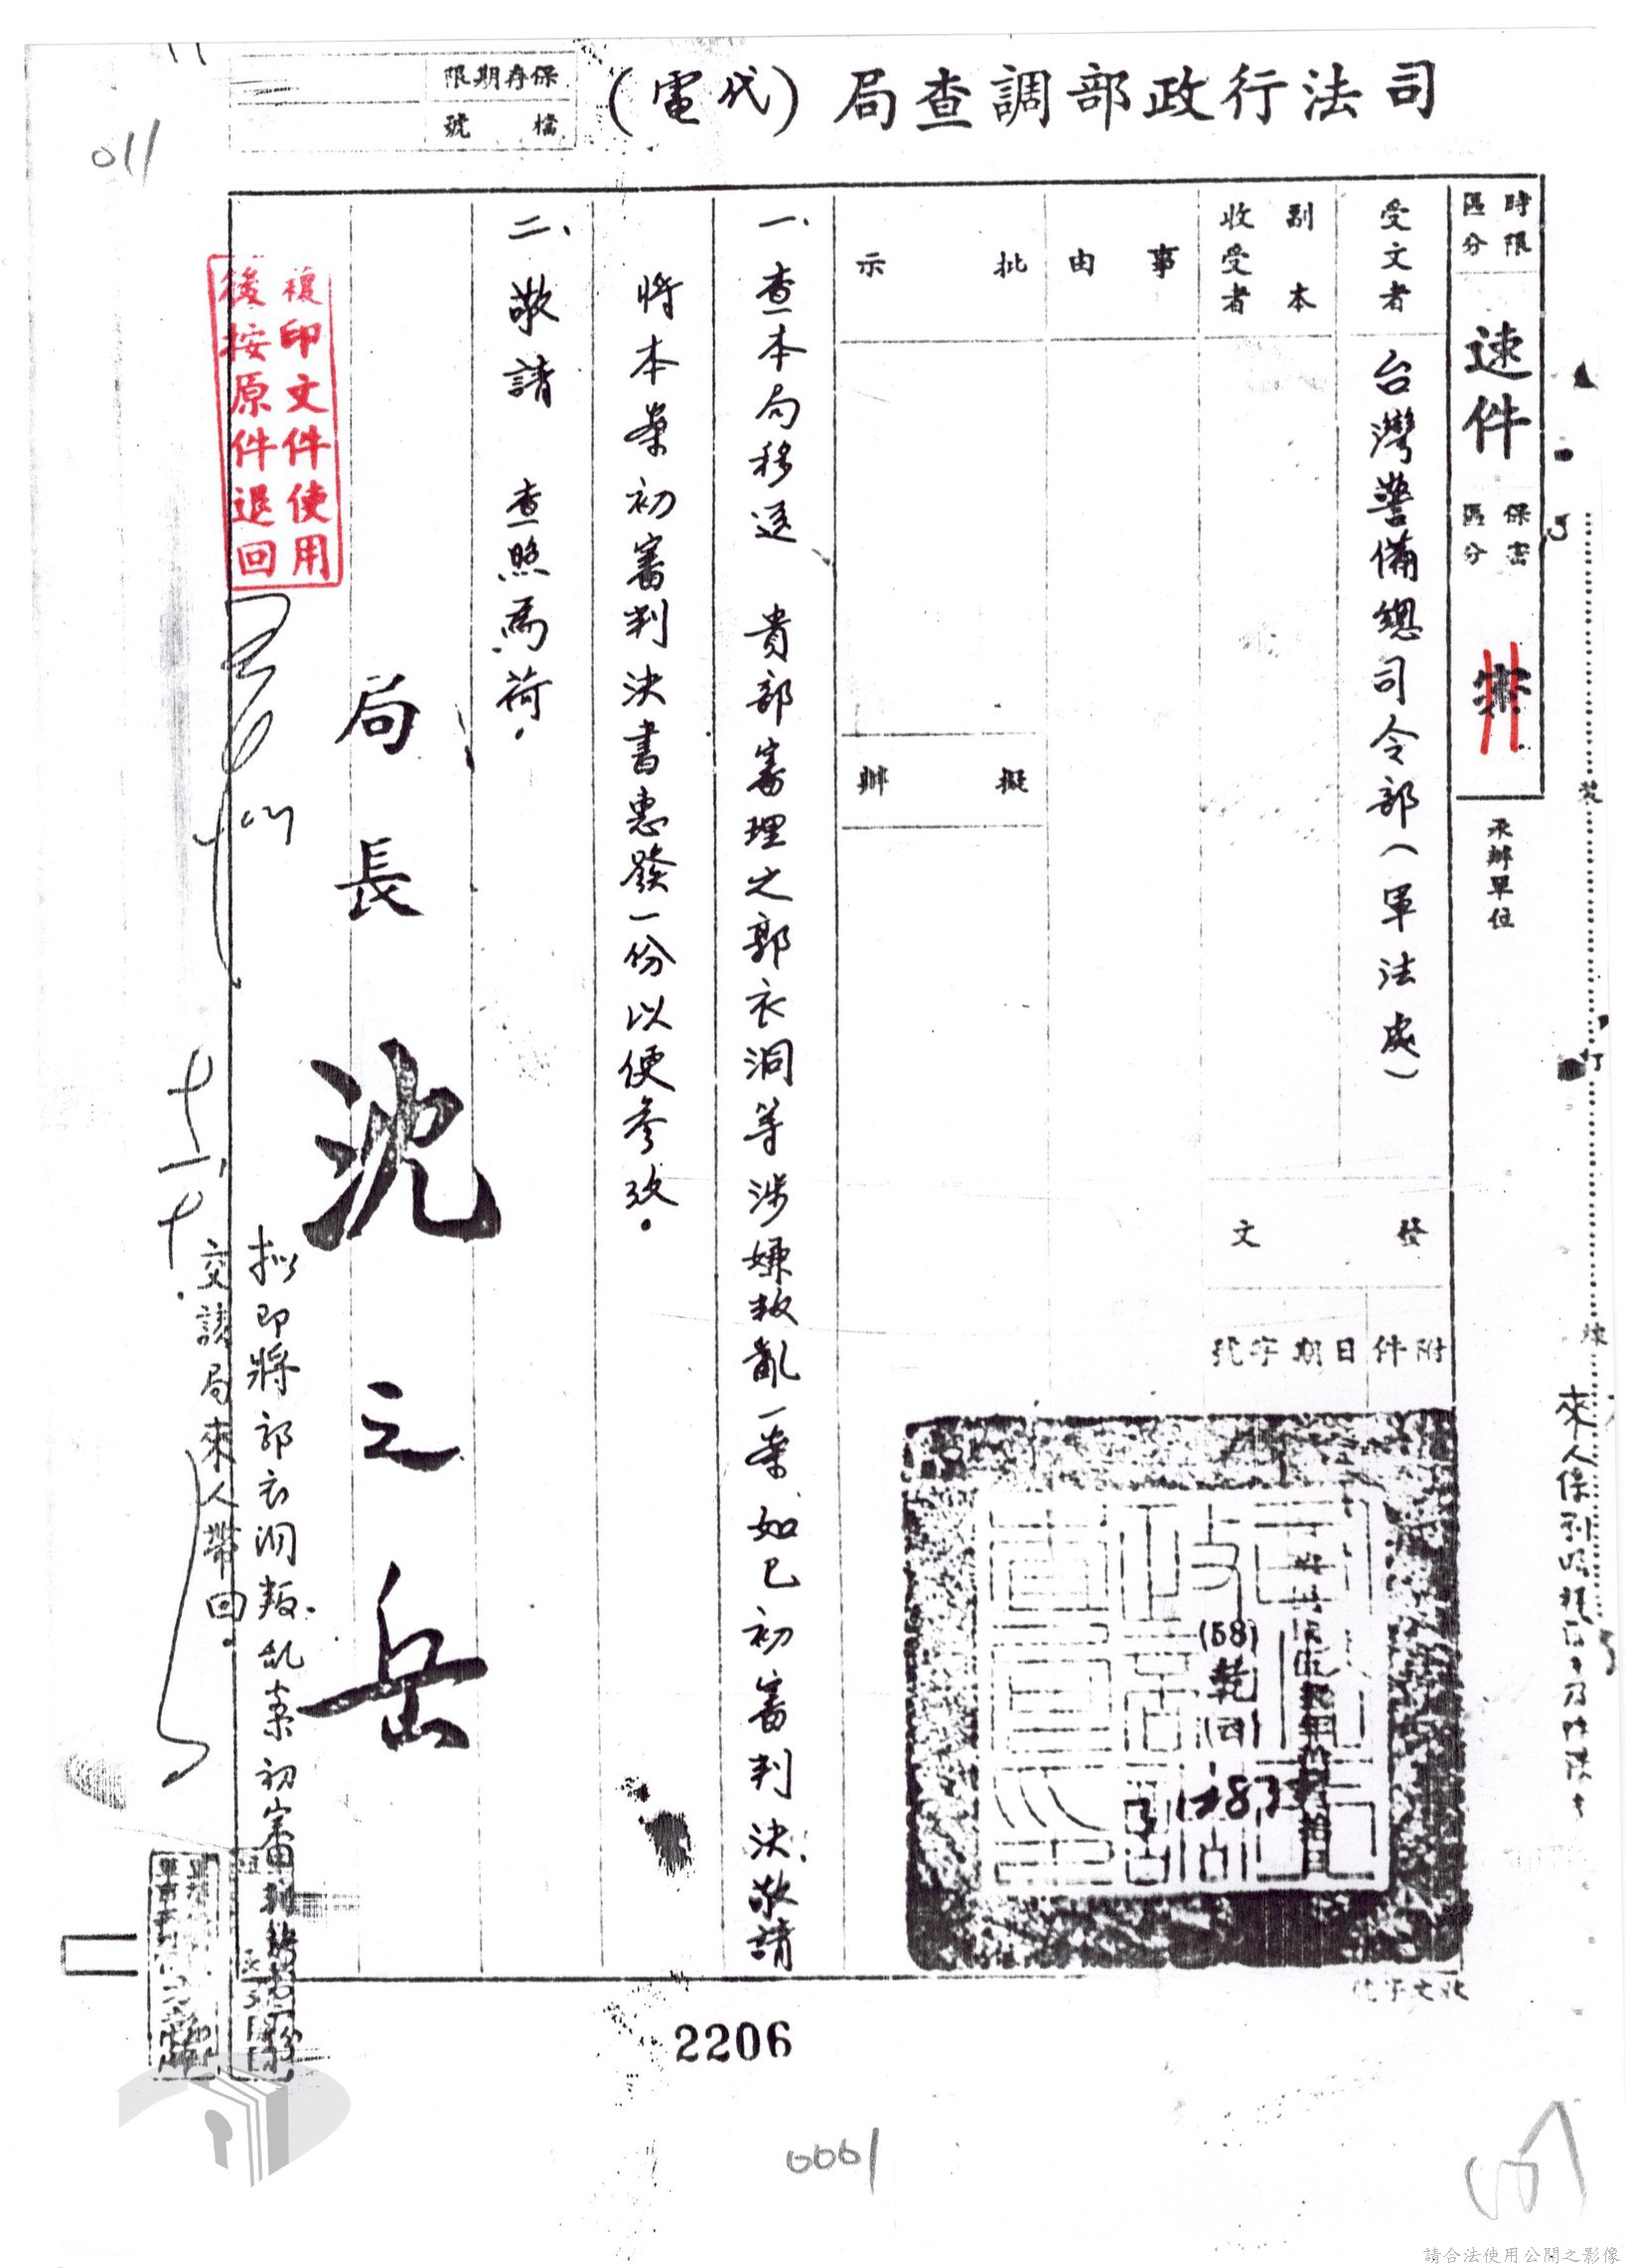 司法行政部調查局(代電)
保存期限
檔號
011
時限區分
速件
保密區分
密
承辦單位
裝
訂
線
受文者
台灣警備總司令部(軍法處)
副本收受者
發文
附件
日期
字號
(58)
事由
批示
擬辦
一、查本局移送 貴部審理之郭衣洞等涉嫌叛亂一案、如已初審判決、敬請
將本案初審判決書惠發一份以便參攷。
二、敬請 查照為荷。
局長 沈之岳
複印文件使用
後按原件退回
擬即將郭衣洞叛亂案初審判
交該局來人帶回。
十一、十
2206
0001
請合法使用公開之影像